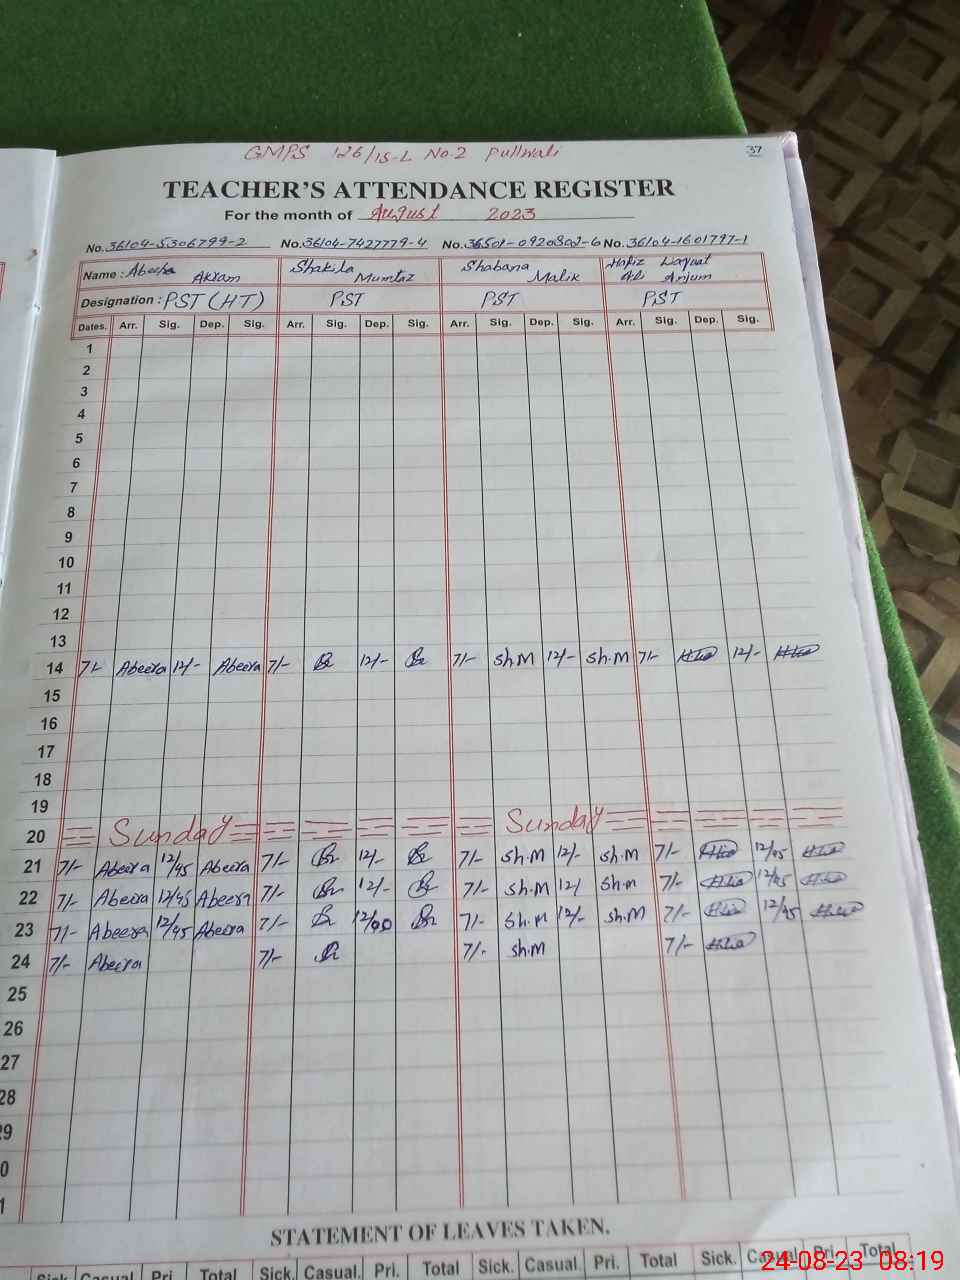 GMPS 126/15-L No.2 Pullwali
37
TEACHER'S ATTENDANCE REGISTER
For the month of August 2023
No. 36104-5306799-2 No. 36104-7427779-4 No. 36501-0920802-6 No. 36104-1601797-1
Name : Abeera Akram Shakila Mumtaz Shabana Malik Hafiz Liaquat Ali Anjum
Designation : PST (HT) PST PST PST
Dates. Arr. Sig. Dep. Sig. Arr. Sig. Dep. Sig. Arr. Sig. Dep. Sig. Arr. Sig. Dep. Sig.
1
2
3
4
5
6
7
8
9
10
11
12
13
14 7/- Abeera 12/- Abeera 7/- 12/- 7/- Sh.M 12/- Sh.M 7/- 12/-
15
16
17
18
19
20 Sunday Sunday
21 7/- Abeera 12/45 Abeera 7/- 12/- 7/- Sh.M 12/- Sh.M 7/- 12/45
22 7/- Abeera 12/45 Abeera 7/- 12/- 7/- Sh.M 12/ Sh.M 7/- 12/45
23 7/- Abeera 12/45 Abeera 7/- 12/00 7/- Sh.M 12/- Sh.M 7/- 12/45
24 7/- Abeera 7/- 7/- Sh.M 7/-
25
26
27
28
29
0
1
STATEMENT OF LEAVES TAKEN.
Sick. Casual. Pri. Total Sick. Casual. Pri. Total Sick. Casual. Pri. Total Sick. Casual. Pri. Total
24-08-23 08:19